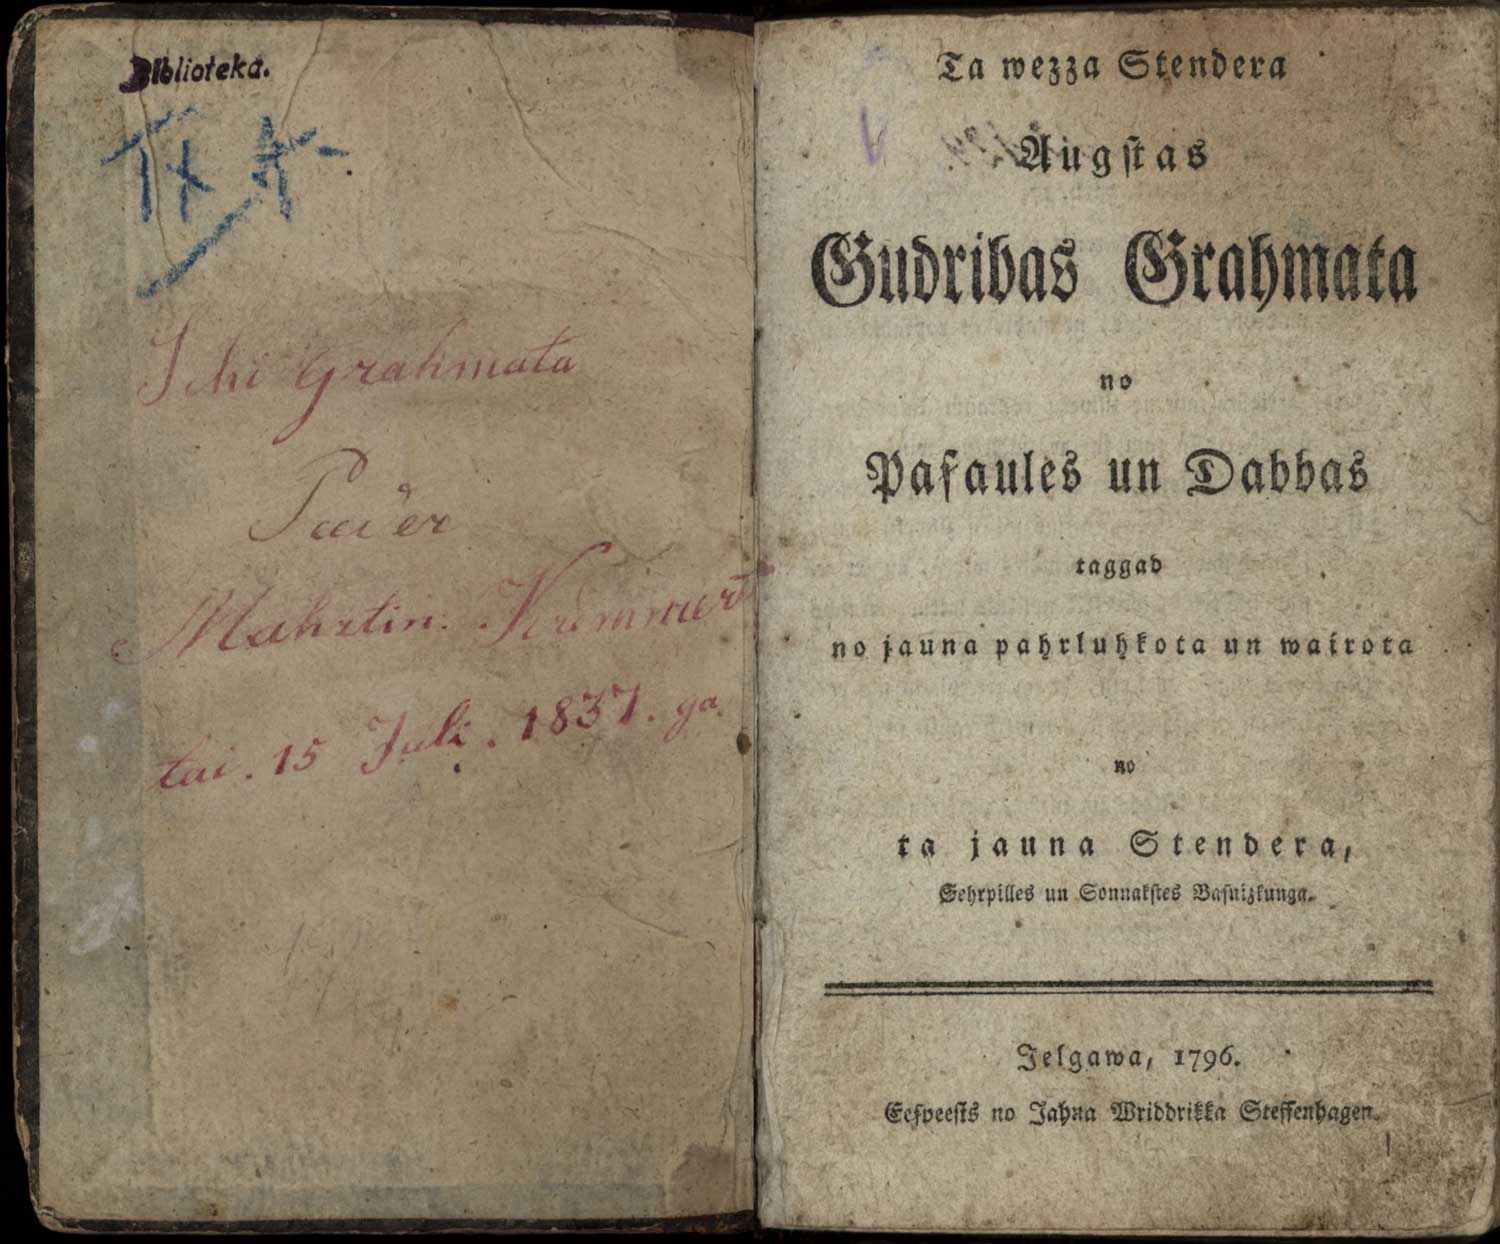 Biblioteka.
IX A
Schi Grahmata
Peeder
Mahrtin. Krummert
tai. 15 Juli. 1837. ga.
Ta wezza Stendera
Augſtas
Gudribas Grahmata
no
Paſaules un Dabbas
taggad
no jauna pahrluhkota un wairota
no
ta jauna Stendera,
Sehrpilles un Sonnakſtes Baſnizkunga.
Jelgawa, 1796.
Eeſpeeſts no Jahna Wriddrikka Steffenhagen.